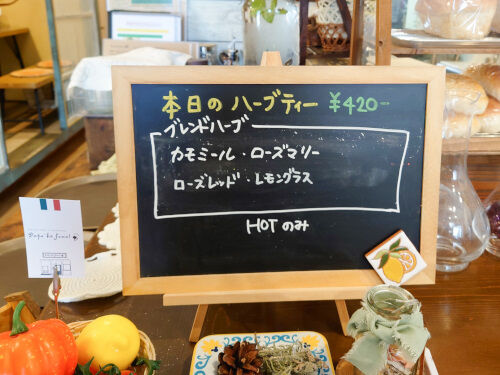 本日の ハーブティー ¥420-
ブレンドハーブ
カモミール・ローズマリー
ローズレッド・レモングラス
HOTのみ